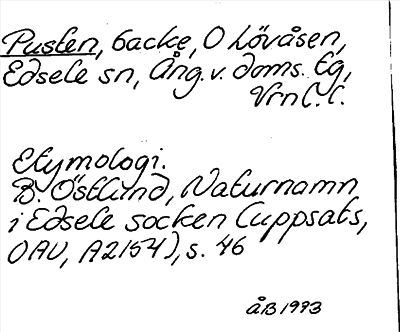 Pusten, backe, O Lövåsen,
Edsele sn, Ång. v. doms. lg,
Vrn l. l.
Etymologi.
B. Östlund, Naturnamn
i Edsele socken (uppsats,
OAU, A2154), s. 46
ÅB 1993